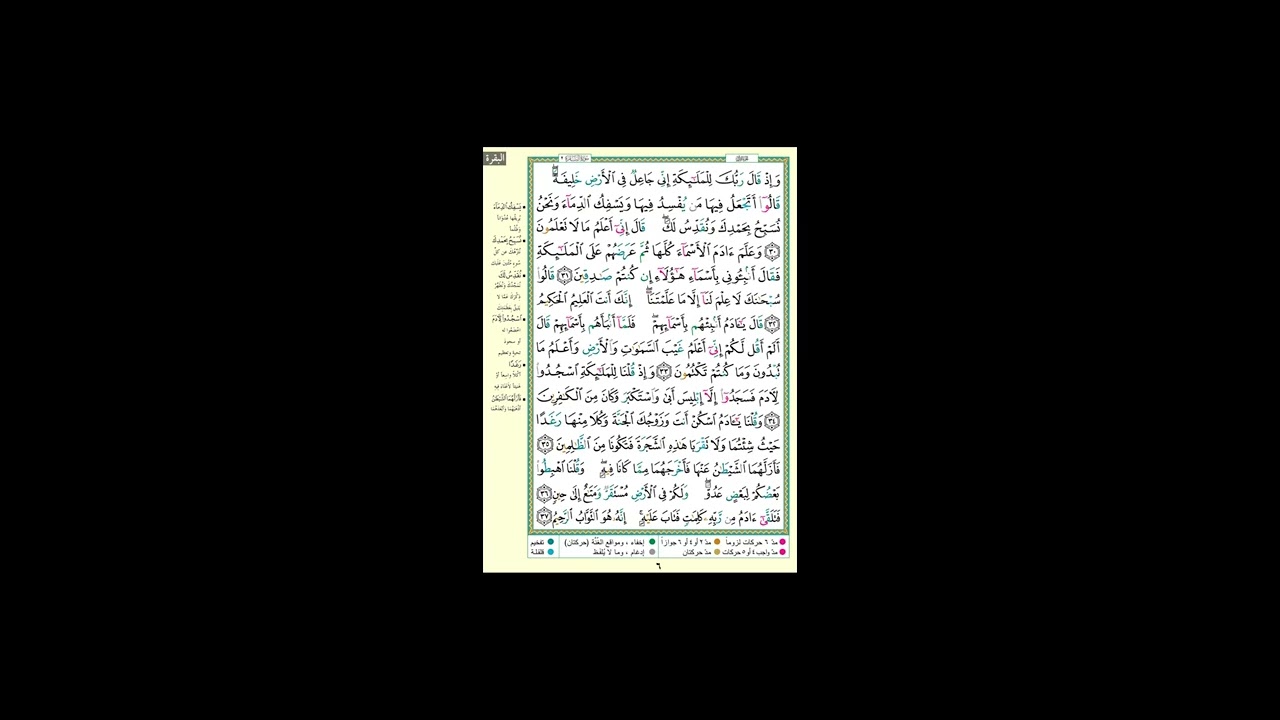 البقرة
سورة البقرة ٢
وَإِذْ قَالَ رَبُّكَ لِلْمَلَـٰٓئِكَةِ إِنِّى جَاعِلٌ فِى ٱلْأَرْضِ خَلِيفَةً ۖ
قَالُوٓا۟ أَتَجْعَلُ فِيهَا مَن يُفْسِدُ فِيهَا وَيَسْفِكُ ٱلدِّمَآءَ وَنَحْنُ
نُسَبِّحُ بِحَمْدِكَ وَنُقَدِّسُ لَكَ ۖ قَالَ إِنِّىٓ أَعْلَمُ مَا لَا تَعْلَمُونَ
٣٠ وَعَلَّمَ ءَادَمَ ٱلْأَسْمَآءَ كُلَّهَا ثُمَّ عَرَضَهُمْ عَلَى ٱلْمَلَـٰٓئِكَةِ
فَقَالَ أَنۢبِـُٔونِى بِأَسْمَآءِ هَـٰٓؤُلَآءِ إِن كُنتُمْ صَـٰدِقِينَ ٣١ قَالُوا۟
سُبْحَـٰنَكَ لَا عِلْمَ لَنَآ إِلَّا مَا عَلَّمْتَنَآ ۖ إِنَّكَ أَنتَ ٱلْعَلِيمُ ٱلْحَكِيمُ
٣٢ قَالَ يَـٰٓـَٔادَمُ أَنۢبِئْهُم بِأَسْمَآئِهِمْ ۖ فَلَمَّآ أَنۢبَأَهُم بِأَسْمَآئِهِمْ قَالَ
أَلَمْ أَقُل لَّكُمْ إِنِّىٓ أَعْلَمُ غَيْبَ ٱلسَّمَـٰوَٰتِ وَٱلْأَرْضِ وَأَعْلَمُ مَا
تُبْدُونَ وَمَا كُنتُمْ تَكْتُمُونَ ٣٣ وَإِذْ قُلْنَا لِلْمَلَـٰٓئِكَةِ ٱسْجُدُوا۟
لِـَٔادَمَ فَسَجَدُوٓا۟ إِلَّآ إِبْلِيسَ أَبَىٰ وَٱسْتَكْبَرَ وَكَانَ مِنَ ٱلْكَـٰفِرِينَ
٣٤ وَقُلْنَا يَـٰٓـَٔادَمُ ٱسْكُنْ أَنتَ وَزَوْجُكَ ٱلْجَنَّةَ وَكُلَا مِنْهَا رَغَدًا
حَيْثُ شِئْتُمَا وَلَا تَقْرَبَا هَـٰذِهِ ٱلشَّجَرَةَ فَتَكُونَا مِنَ ٱلظَّـٰلِمِينَ ٣٥
فَأَزَلَّهُمَا ٱلشَّيْطَـٰنُ عَنْهَا فَأَخْرَجَهُمَا مِمَّا كَانَا فِيهِ ۖ وَقُلْنَا ٱهْبِطُوا۟
بَعْضُكُمْ لِبَعْضٍ عَدُوٌّ ۖ وَلَكُمْ فِى ٱلْأَرْضِ مُسْتَقَرٌّ وَمَتَـٰعٌ إِلَىٰ حِينٍ ٣٦
فَتَلَقَّىٰٓ ءَادَمُ مِن رَّبِّهِۦ كَلِمَـٰتٍ فَتَابَ عَلَيْهِ ۚ إِنَّهُۥ هُوَ ٱلتَّوَّابُ ٱلرَّحِيمُ ٣٧
يَسْفِكُ ٱلدِّمَآءَ
نُسَبِّحُ بِحَمْدِكَ
نُقَدِّسُ لَكَ
ٱسْجُدُوا۟ لِـَٔادَمَ
أو سجود
تحية وتعظيم
رَغَدًا
مد ٦ حركات لزوماً مد ٢ أو ٤ أو ٦ جوازاً إخفاء ، ومواقع الغنّة (حركتان) تفخيم
مد واجب ٤ أو ٥ حركات مد حركتان إدغام ، وما لا يُلفظ قلقلة
٦